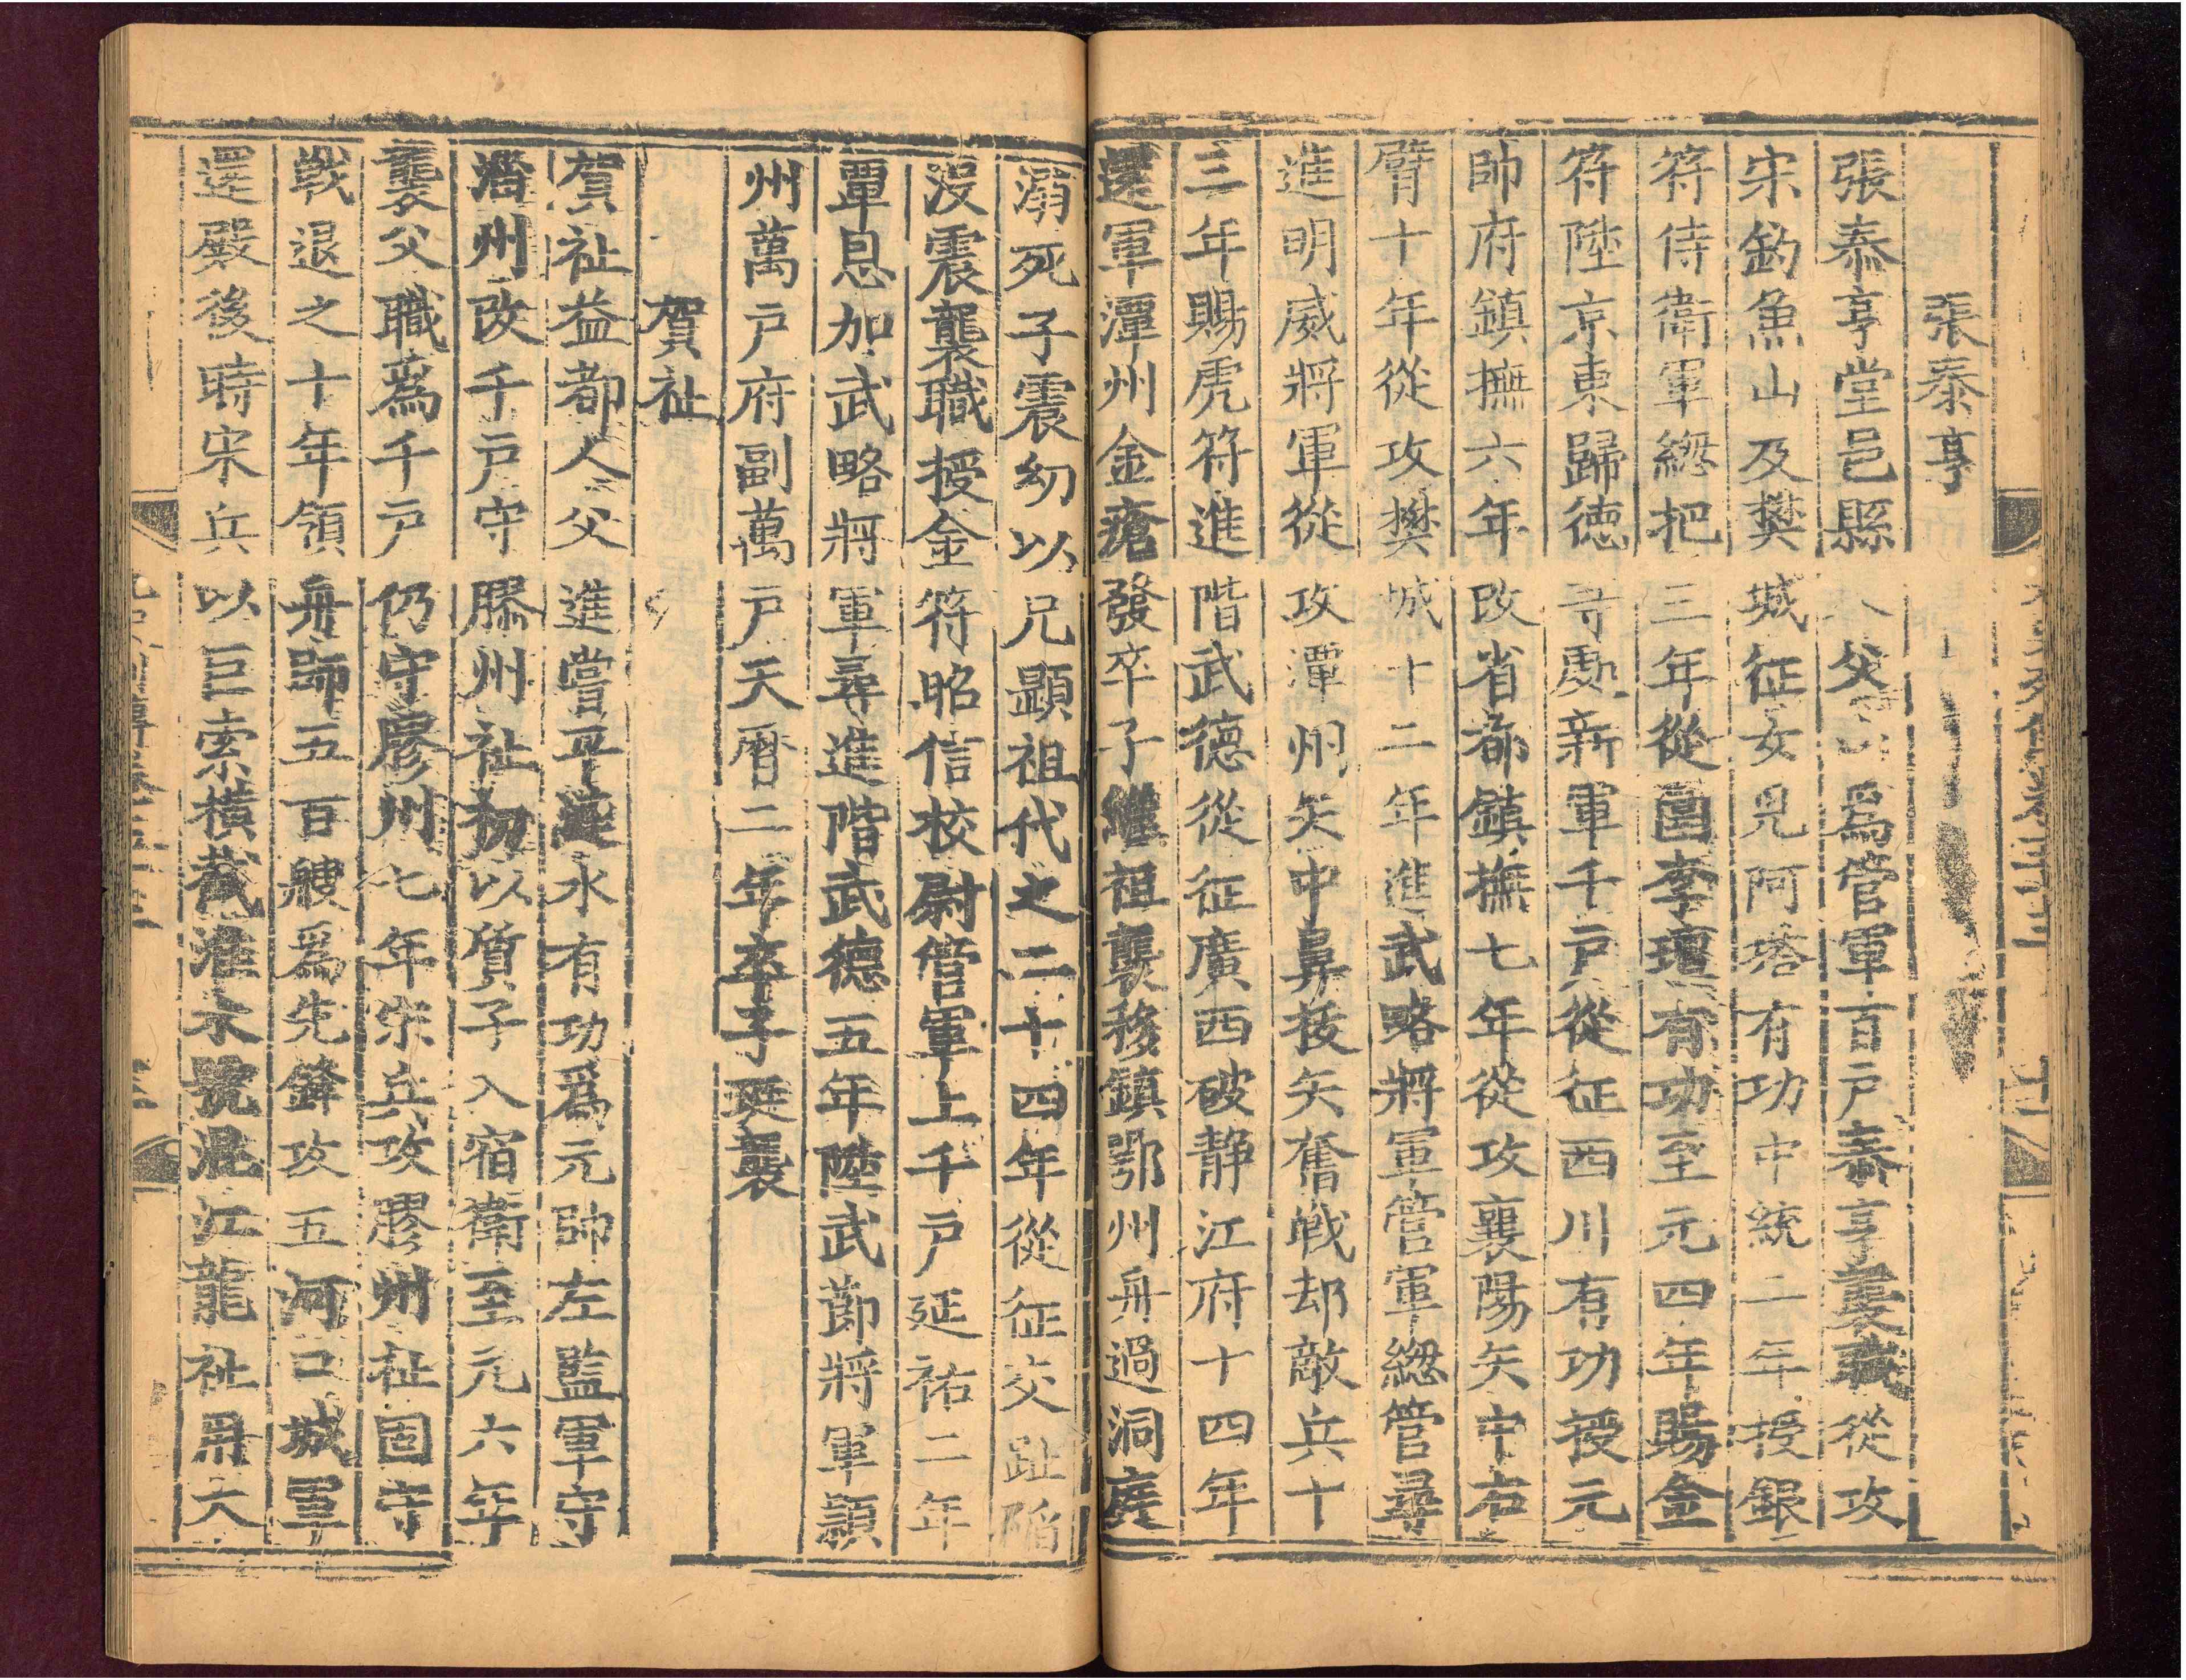 張泰亨
張泰亨堂邑縣人父山爲管軍百戶泰亨襲職從攻
宋釣魚山及樊城征女兒阿塔有功中統二年授銀
符侍衛軍緫把三年從圍李璮有功至元四年賜金
符陞京東歸德等處新軍千戶從征西川有功授元
帥府鎮撫六年改省都鎮撫七年從攻襄陽矢中右
臂十年從攻樊城十二年進武略將軍管軍緫管尋
進明威將軍從攻潭州矢中鼻拔矢奮戰却敵兵十
三年賜虎符進階武德從征廣西破静江府十四年
還軍潭州金瘡發卒子繼祖襲移鎮鄂州舟過洞庭
溺死子震幼以兄顕祖代之二十四年從征交趾陷
没震襲職授金符昭信校尉管軍上千戶延祐二年
覃恩加武略將軍尋進階武德五年陞武節將軍潁
州萬戶府副萬戶天曆二年卒子珽襲
賀祉
賀祉益都人父進嘗平漣水有功爲元帥左監軍守
淄州改千戶守膠州祉初以質子入宿衛至元六年
襲父職爲千戶仍守膠州七年宋兵攻膠州祉固守
戰退之十年領舟師五百艘爲先鋒攻五河口城軍
還殿後時宋兵以巨索橫截淮水號混江龍祉用大